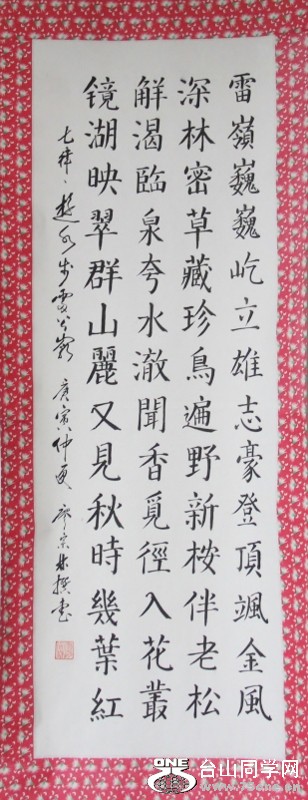 雷嶺巍巍屹立雄志豪登頂颯金風
深林密草藏珍鳥遍野新桉伴老松
觧渴臨泉夸水澈聞香覓徑入花叢
镜湖映翠群山麗又見秋時幾葉紅
七律、遊 庚寅仲夏 廖宗林撰书
ONE
台山同学网